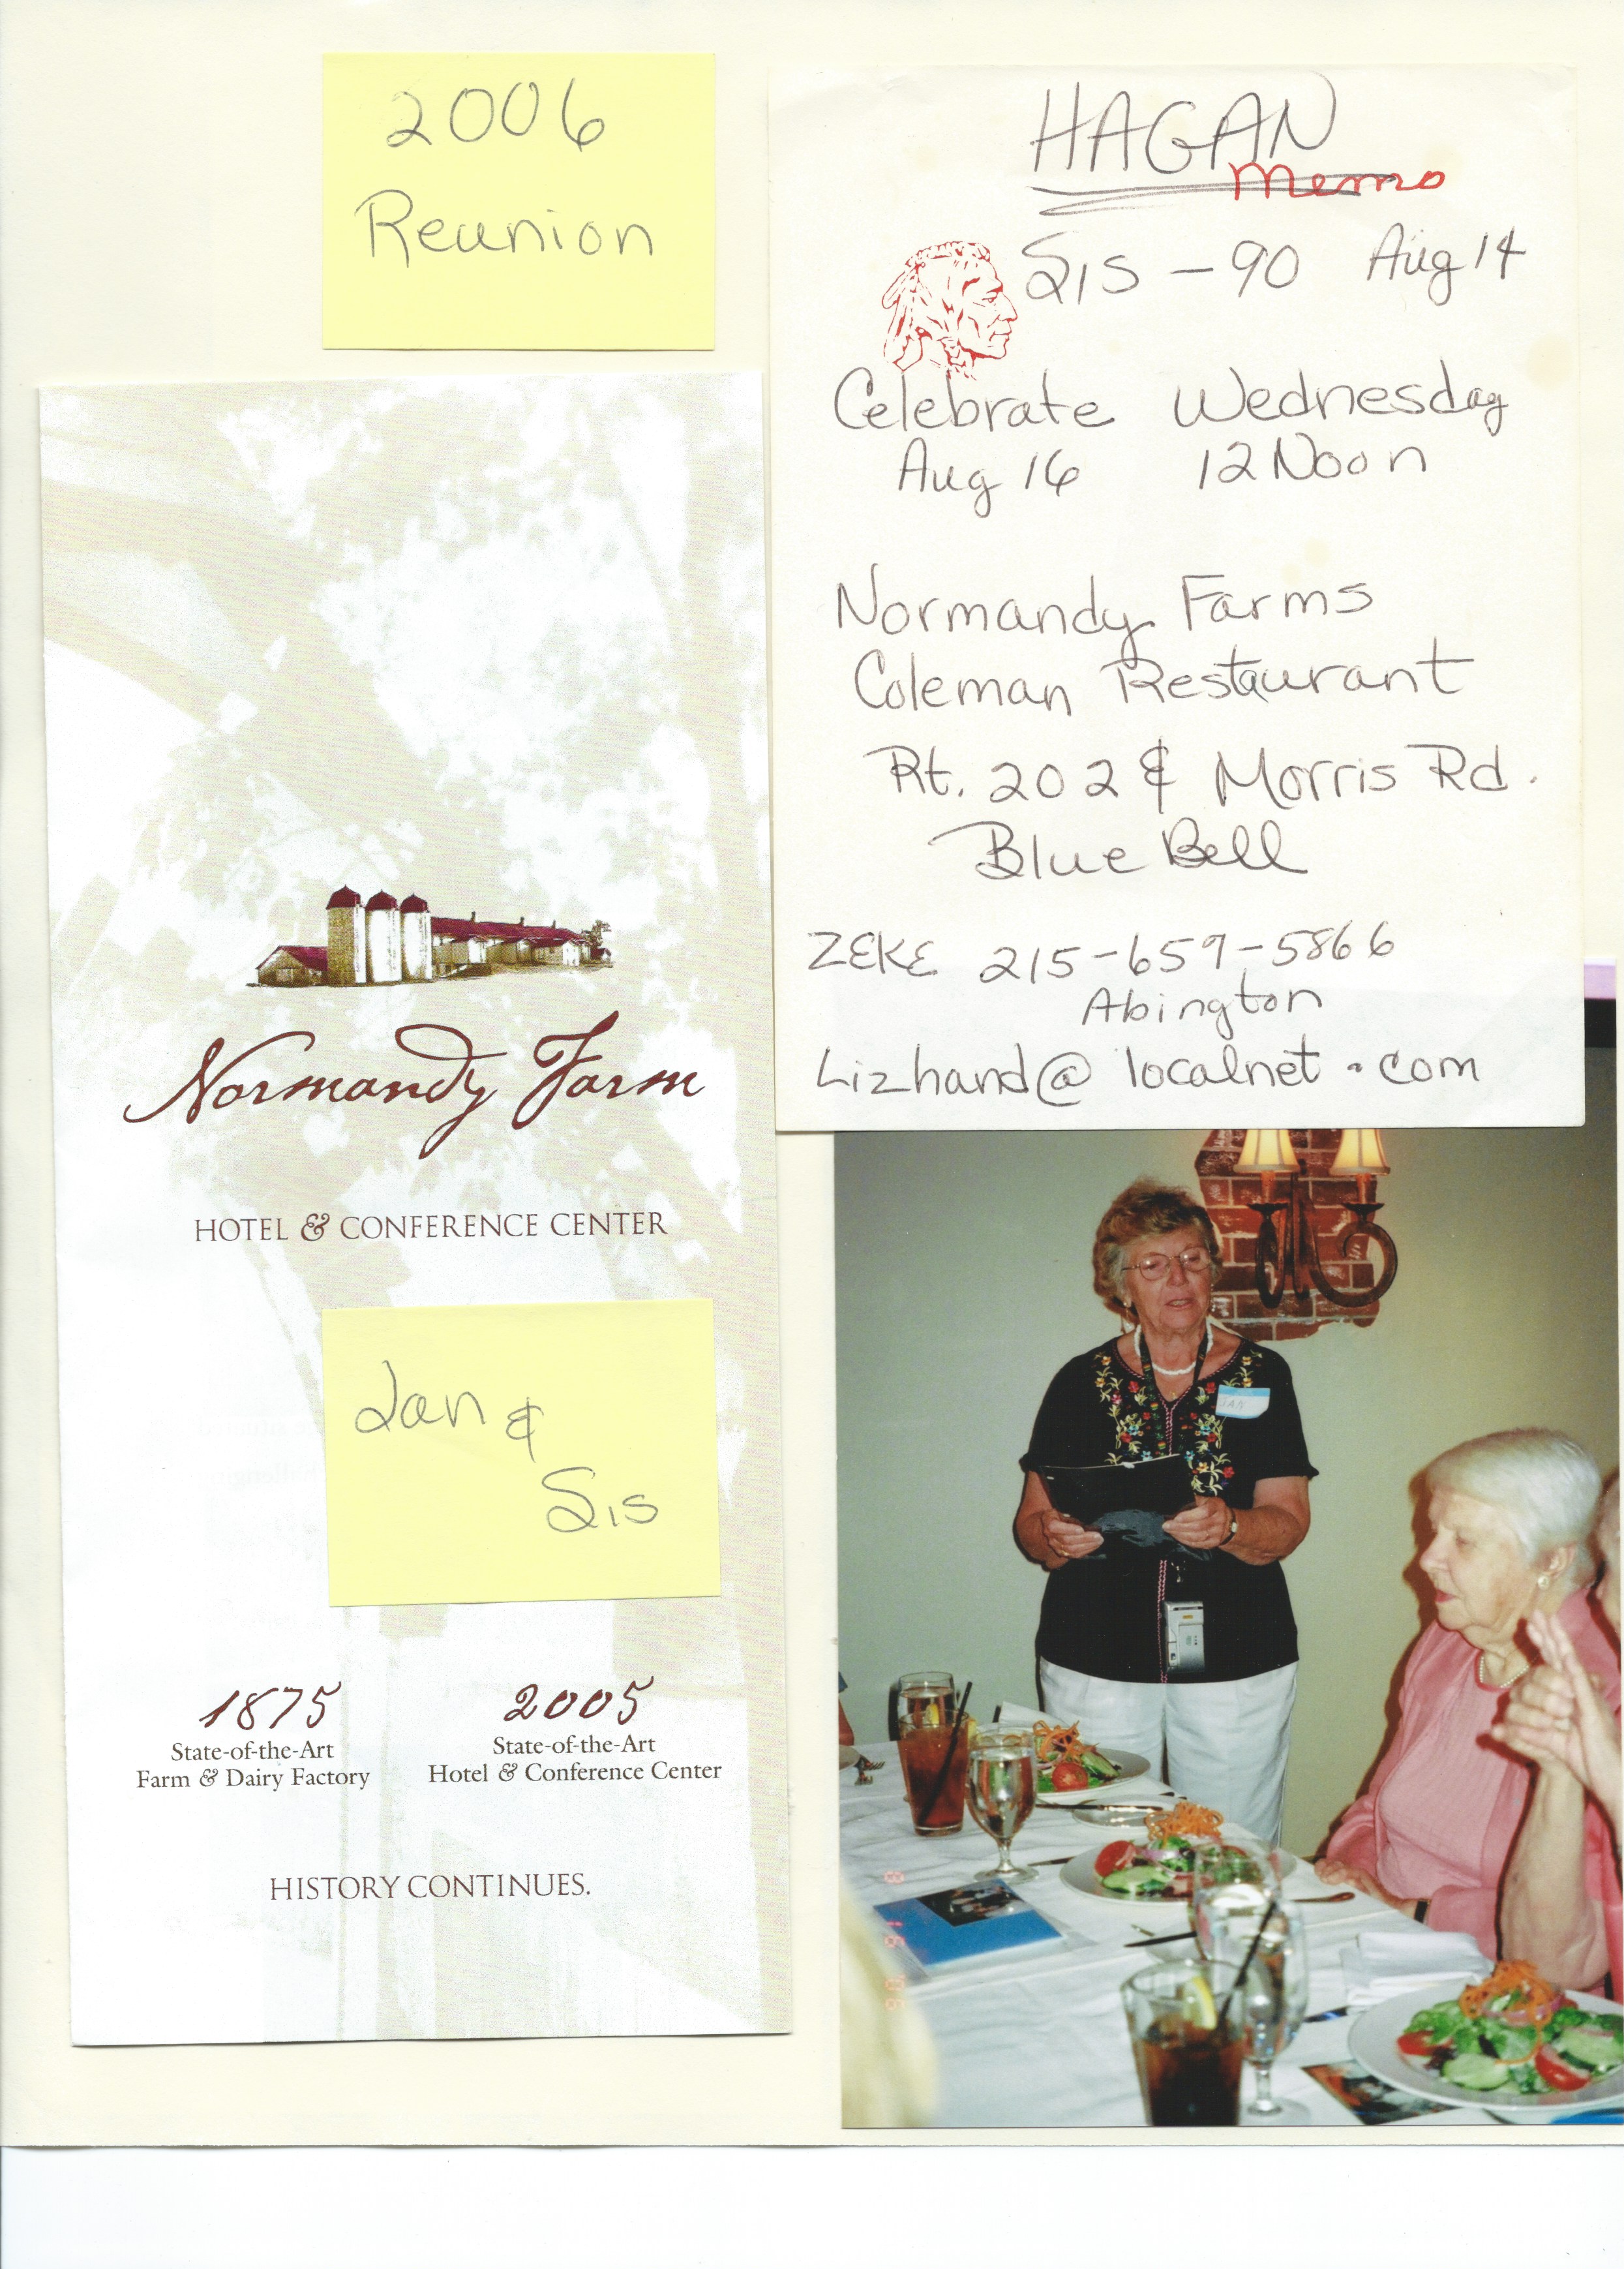 2006
Reunion
HAGAN
Memo
SIS - 90 Aug 14
Celebrate Wednesday
Aug 16 12 Noon
Normandy Farms
Coleman Restaurant
Rt. 202 & Morris Rd.
Blue Bell
ZEKE 215-659-5866
Abington
Lizhand@localnet.com
Normandy Farm
HOTEL & CONFERENCE CENTER
Jan &
Sis
1875
State-of-the-Art
Farm & Dairy Factory
2005
State-of-the-Art
Hotel & Conference Center
HISTORY CONTINUES.
JAN
8 16 '06